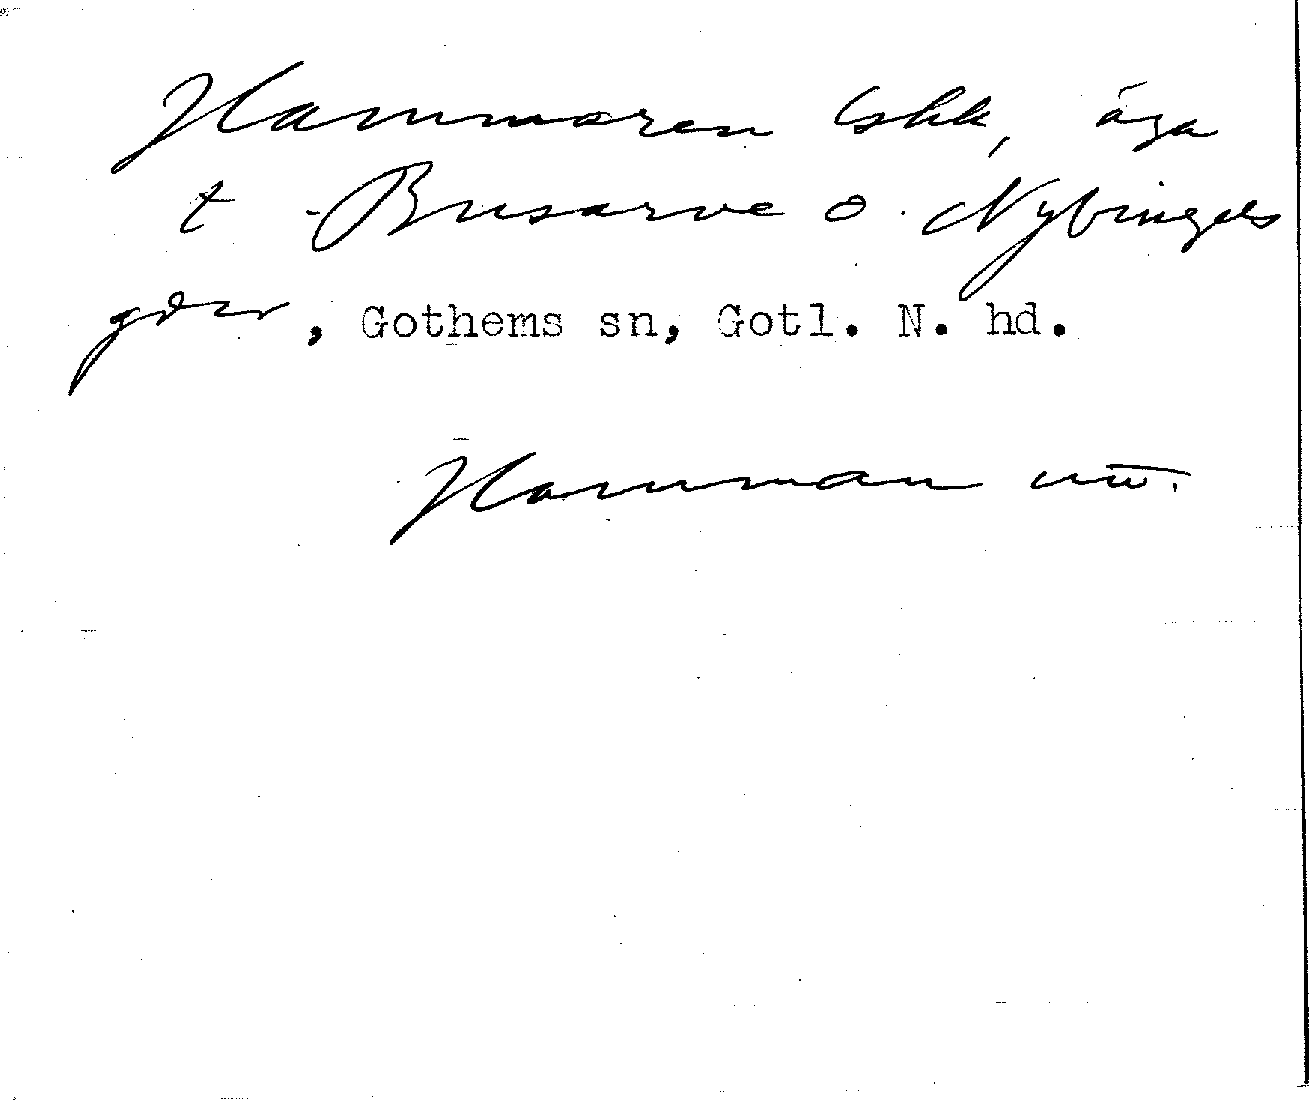 Hammaren tshk, äga
t Busarve o. Nybingels
gdar, Gothems sn, Gotl. N. hd.
Hamman